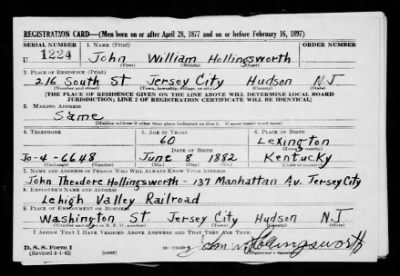 REGISTRATION CARD—(Men born on or after April 28, 1877 and on or before February 16, 1897)
SERIAL NUMBER 1. NAME (Print) ORDER NUMBER
U 1224 John William Hollingsworth
(First) (Middle) (Last)
2. PLACE OF RESIDENCE (Print)
216 South St Jersey City Hudson N.J
(Number and street) (Town, township, village, or city) (County) (State)
[THE PLACE OF RESIDENCE GIVEN ON THE LINE ABOVE WILL DETERMINE LOCAL BOARD
JURISDICTION; LINE 2 OF REGISTRATION CERTIFICATE WILL BE IDENTICAL]
3. MAILING ADDRESS
Same
[Mailing address if other than place indicated on line 2. If same insert word same]
4. TELEPHONE 5. AGE IN YEARS 6. PLACE OF BIRTH
60 Lexington
DATE OF BIRTH (Town or county)
Jo-4-6648 June 8 1882 Kentucky
(Exchange) (Number) (Mo.) (Day) (Yr.) (State or country)
7. NAME AND ADDRESS OF PERSON WHO WILL ALWAYS KNOW YOUR ADDRESS
John Theodore Hollingsworth - 137 Manhattan Av. Jersey City
8. EMPLOYER'S NAME AND ADDRESS
Lehigh Valley Railroad
9. PLACE OF EMPLOYMENT OR BUSINESS
Washington St Jersey City Hudson N.J
(Number and street or R. F. D. number) (Town) (County) (State)
I AFFIRM THAT I HAVE VERIFIED ABOVE ANSWERS AND THAT THEY ARE TRUE.
D. S. S. Form 1
(Revised 4-1-42) (over) John W Hollingsworth